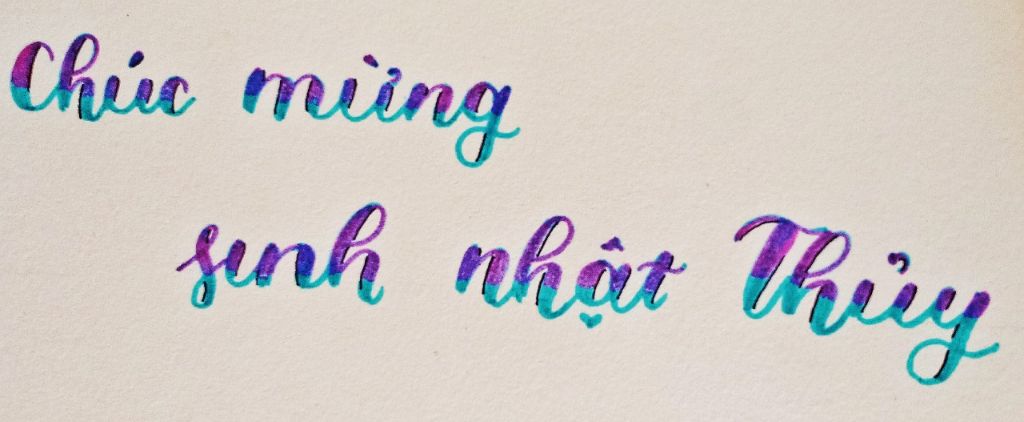 Chúc mừng
sinh nhật Thủy